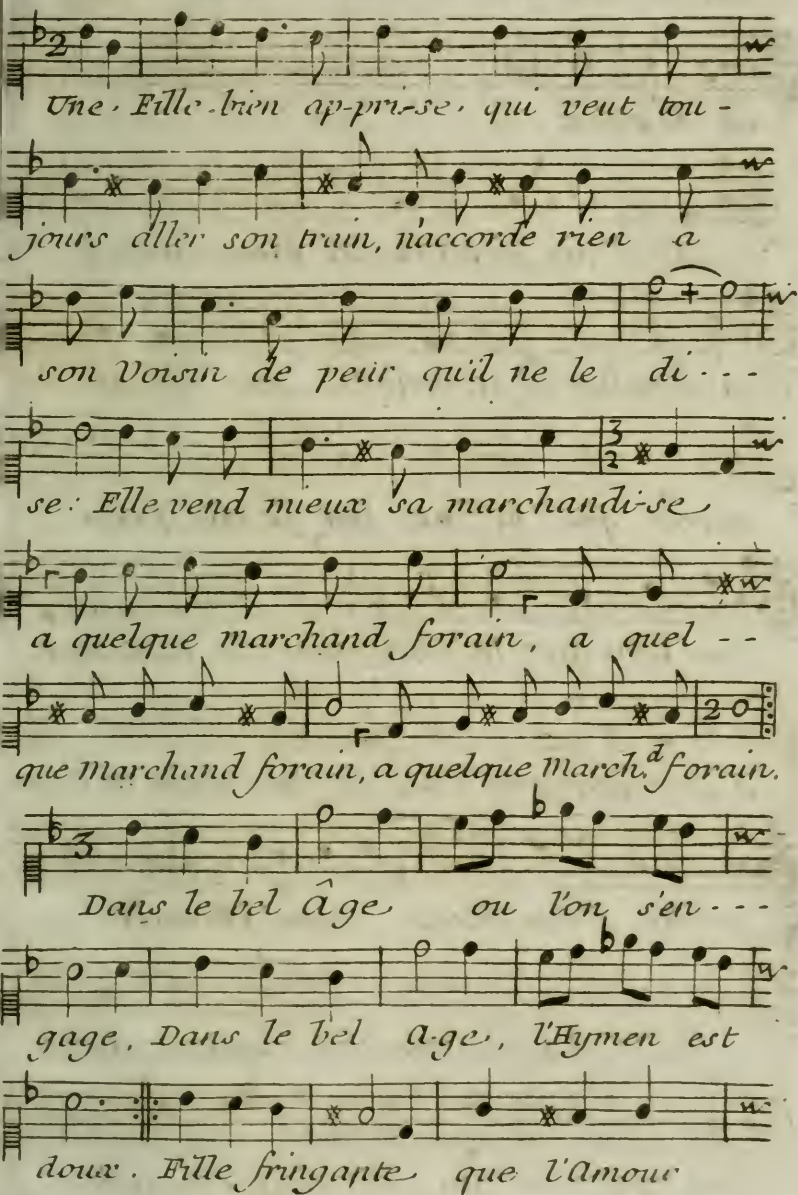 Une Fille bien ap-pri-se. qui veut tou-
jours aller son train, n'accorde rien a
son Voisin de peur qu'il ne le di---
se: Elle vend mieux sa marchandi-se
a quelque marchand forain, a quel--
que marchand forain, a quelque march.d forain.
Dans le bel Âge ou l'on s'en---
gage, Dans le bel A-ge, l'Hymen est
doux. Fille fringante que l'Amour